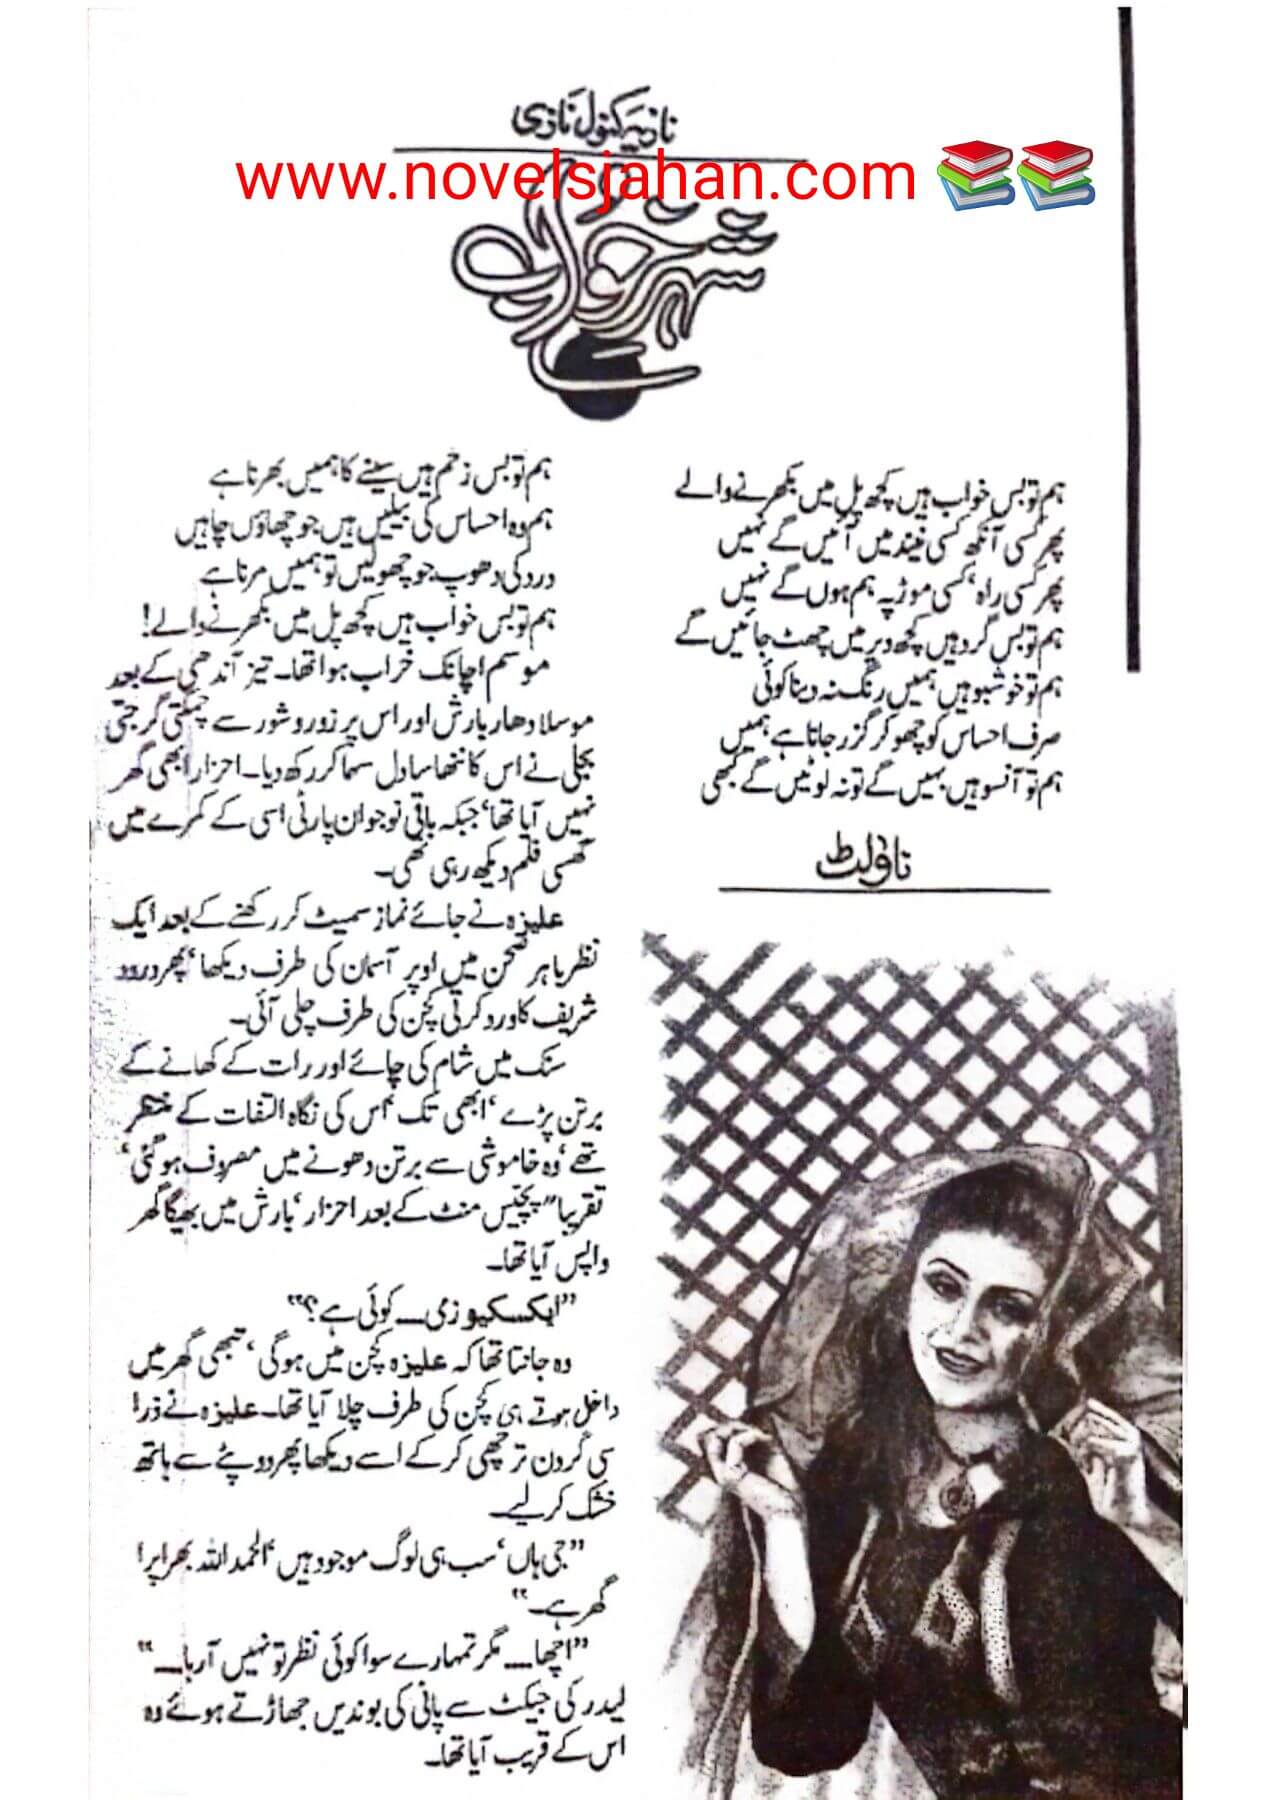 نازیہ کنول نازی
www.novelsjahan.com
شہر خواب
ہم تو بس خواب ہیں کچھ پل میں بکھرنے والے
پھر کسی آنکھ کسی نیند میں آئیں گے نہیں
پھر کسی راہ، کسی موڑ پہ ہم ہوں گے نہیں
ہم تو بس گرد ہیں کچھ دیر میں چھٹ جائیں گے
ہم تو خوشبو ہیں ہمیں رنگ نہ دینا کوئی
صرف احساس کو چھو کر گزر جانا ہے ہمیں
ہم تو آنسو ہیں بہیں گے تو نہ لوٹیں گے کبھی
ناولٹ
ہم تو بس زخم ہیں سینے کا ہمیں بھرنا ہے
ہم وہ احساس کی بیلیں ہیں جو چھاؤں چاہیں
درد کی دھوپ جو چھولیں تو ہمیں مرنا ہے
ہم تو بس خواب ہیں کچھ پل میں بکھرنے والے!
موسم اچانک خراب ہوا تھا۔ تیز آندھی کے بعد
موسلا دھار بارش اور اس پر زور و شور سے چمکتی گرجتی
بجلی نے اس کا ننھا سا دل سہما کر رکھ دیا۔ احزار ابھی گھر
نہیں آیا تھا، جبکہ باقی نوجوان پارٹی اسی کے کمرے میں
گھسی فلم دیکھ رہی تھی۔
علیزہ نے جائے نماز سمیٹ کر رکھنے کے بعد ایک
نظر باہر صحن میں اوپر آسمان کی طرف دیکھا، پھر درود
شریف کا ورد کرتی کچن کی طرف چلی آئی۔
سنک میں شام کی چائے اور رات کے کھانے کے
برتن پڑے، ابھی تک اس کی نگاہ التفات کے منتظر
تھے، وہ خاموشی سے برتن دھونے میں مصروف ہو گئی،
تقریباً پچیس منٹ کے بعد احزار، بارش میں بھیگا گھر
واپس آیا تھا۔
”ایکسکیوزمی۔۔۔ کوئی ہے؟“
وہ جانتا تھا کہ علیزہ کچن میں ہوگی، تبھی گھر میں
داخل ہوتے ہی کچن کی طرف چلا آیا تھا۔ علیزہ نے ذرا
سی گردن ترچھی کر کے اسے دیکھا پھر دوپٹے سے ہاتھ
خشک کر لیے۔
”جی ہاں، سب ہی لوگ موجود ہیں، الحمدللہ بھرا پرا
گھر ہے۔“
”اچھا۔۔۔ مگر تمہارے سوا کوئی نظر تو نہیں آرہا۔۔۔“
لیدر کی جیکٹ سے پانی کی بوندیں جھاڑتے ہوئے وہ
اس کے قریب آیا تھا۔